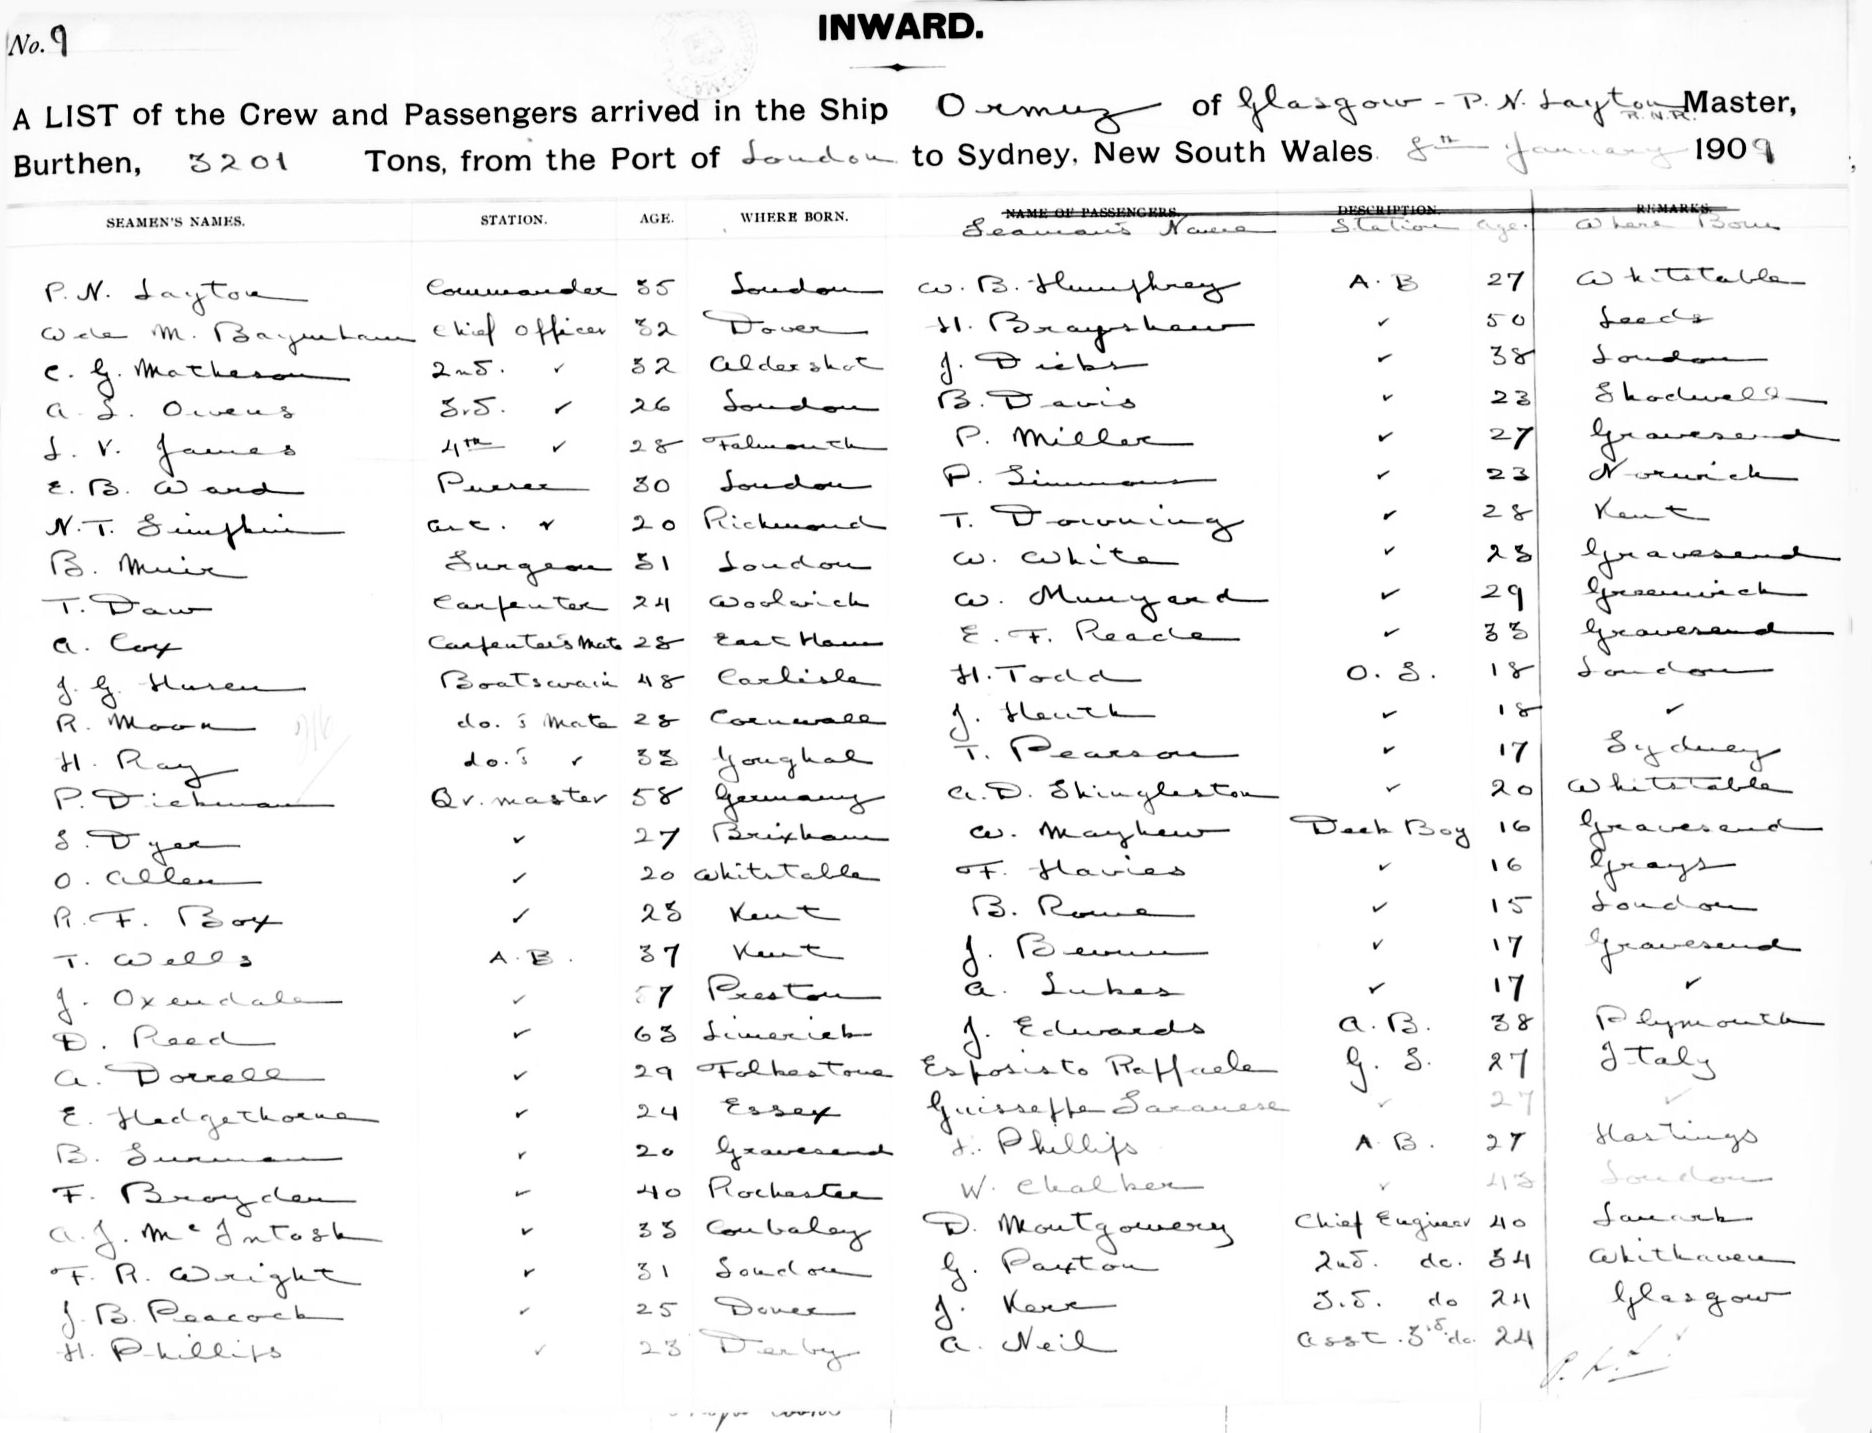 No. 9
INWARD.
A LIST of the Crew and Passengers arrived in the Ship Ormuz of Glasgow - P. N. Layton R.N.R. Master,
Burthen, 3201 Tons, from the Port of London to Sydney, New South Wales 8th January 1909
SEAMEN'S NAMES. STATION. AGE. WHERE BORN. NAME OF PASSENGERS. DESCRIPTION. REMARKS.
Seaman's Name Station Age. Where Born
P. N. Layton Commander 35 London W. B. Humphrey A. B 27 Whitstable
W de M. Baynham Chief Officer 32 Dover H. Brayshaw ✓ 50 Leeds
C. G. Matheson 2nd. ✓ 32 Aldershot J. Dicks ✓ 38 London
A. L. Owens 3rd. ✓ 26 London B. Davis ✓ 23 Shadwell
L. V. James 4th ✓ 28 Falmouth P. Miller ✓ 27 Gravesend
E. B. Ward Purser 30 London P. Simmons ✓ 23 Norwich
N. T. Simpkin ✓ 20 Richmond T. Downing ✓ 28 Kent
B. Muir Surgeon 31 London W. White ✓ 23 Gravesend
T. Daw Carpenter 24 Woolwich W. Munyard ✓ 29 Greenwich
A. Cox Carpenter's Mate 28 East Ham E. F. Reade ✓ 33 Gravesend
J. G. Husen Boatswain 48 Carlisle H. Todd O. S. 18 London
R. Moon do.'s Mate 28 Cornwall J. Heath ✓ 18 ✓
H. Ray do.'s ✓ 33 Youghal T. Pearson ✓ 17 Sydney
P. Dickman Qr. master 58 Germany A. D. Shingleston ✓ 20 Whitstable
S. Dyer ✓ 27 Brixham W. Mayhew Deck Boy 16 Gravesend
O. Allen ✓ 20 Whitstable F. Havies ✓ 16 Grays
R. F. Box ✓ 23 Kent B. Rowe ✓ 15 London
T. Wells A. B. 37 Kent J. ✓ 17 Gravesend
J. Oxendale ✓ 57 Preston A. Lukes ✓ 17 ✓
D. Reed ✓ 63 Limerick J. Edwards A. B. 38 Plymouth
A. Dorrell ✓ 29 Folkestone Esposisto Raffaele G. S. 27 Italy
E. Hedgethorne ✓ 24 Essex Guisseppe Saranese ✓ 27 ✓
B. Surman ✓ 20 Gravesend H. Phillips A. B. 27 Hastings
F. Broyden ✓ 40 Rochester W. Chalker ✓ 43 London
A. J. McIntosh ✓ 33 D. Montgomery Chief Engineer 40 Lanark
F. R. Wright ✓ 31 London G. Paxton 2nd. do. 34 Whithaven
J. B. Peacock ✓ 25 Dover J. Kerr 3rd. do 24 Glasgow
H. Phillips ✓ 23 Derby A. Neil Asst. 3rd do. 24